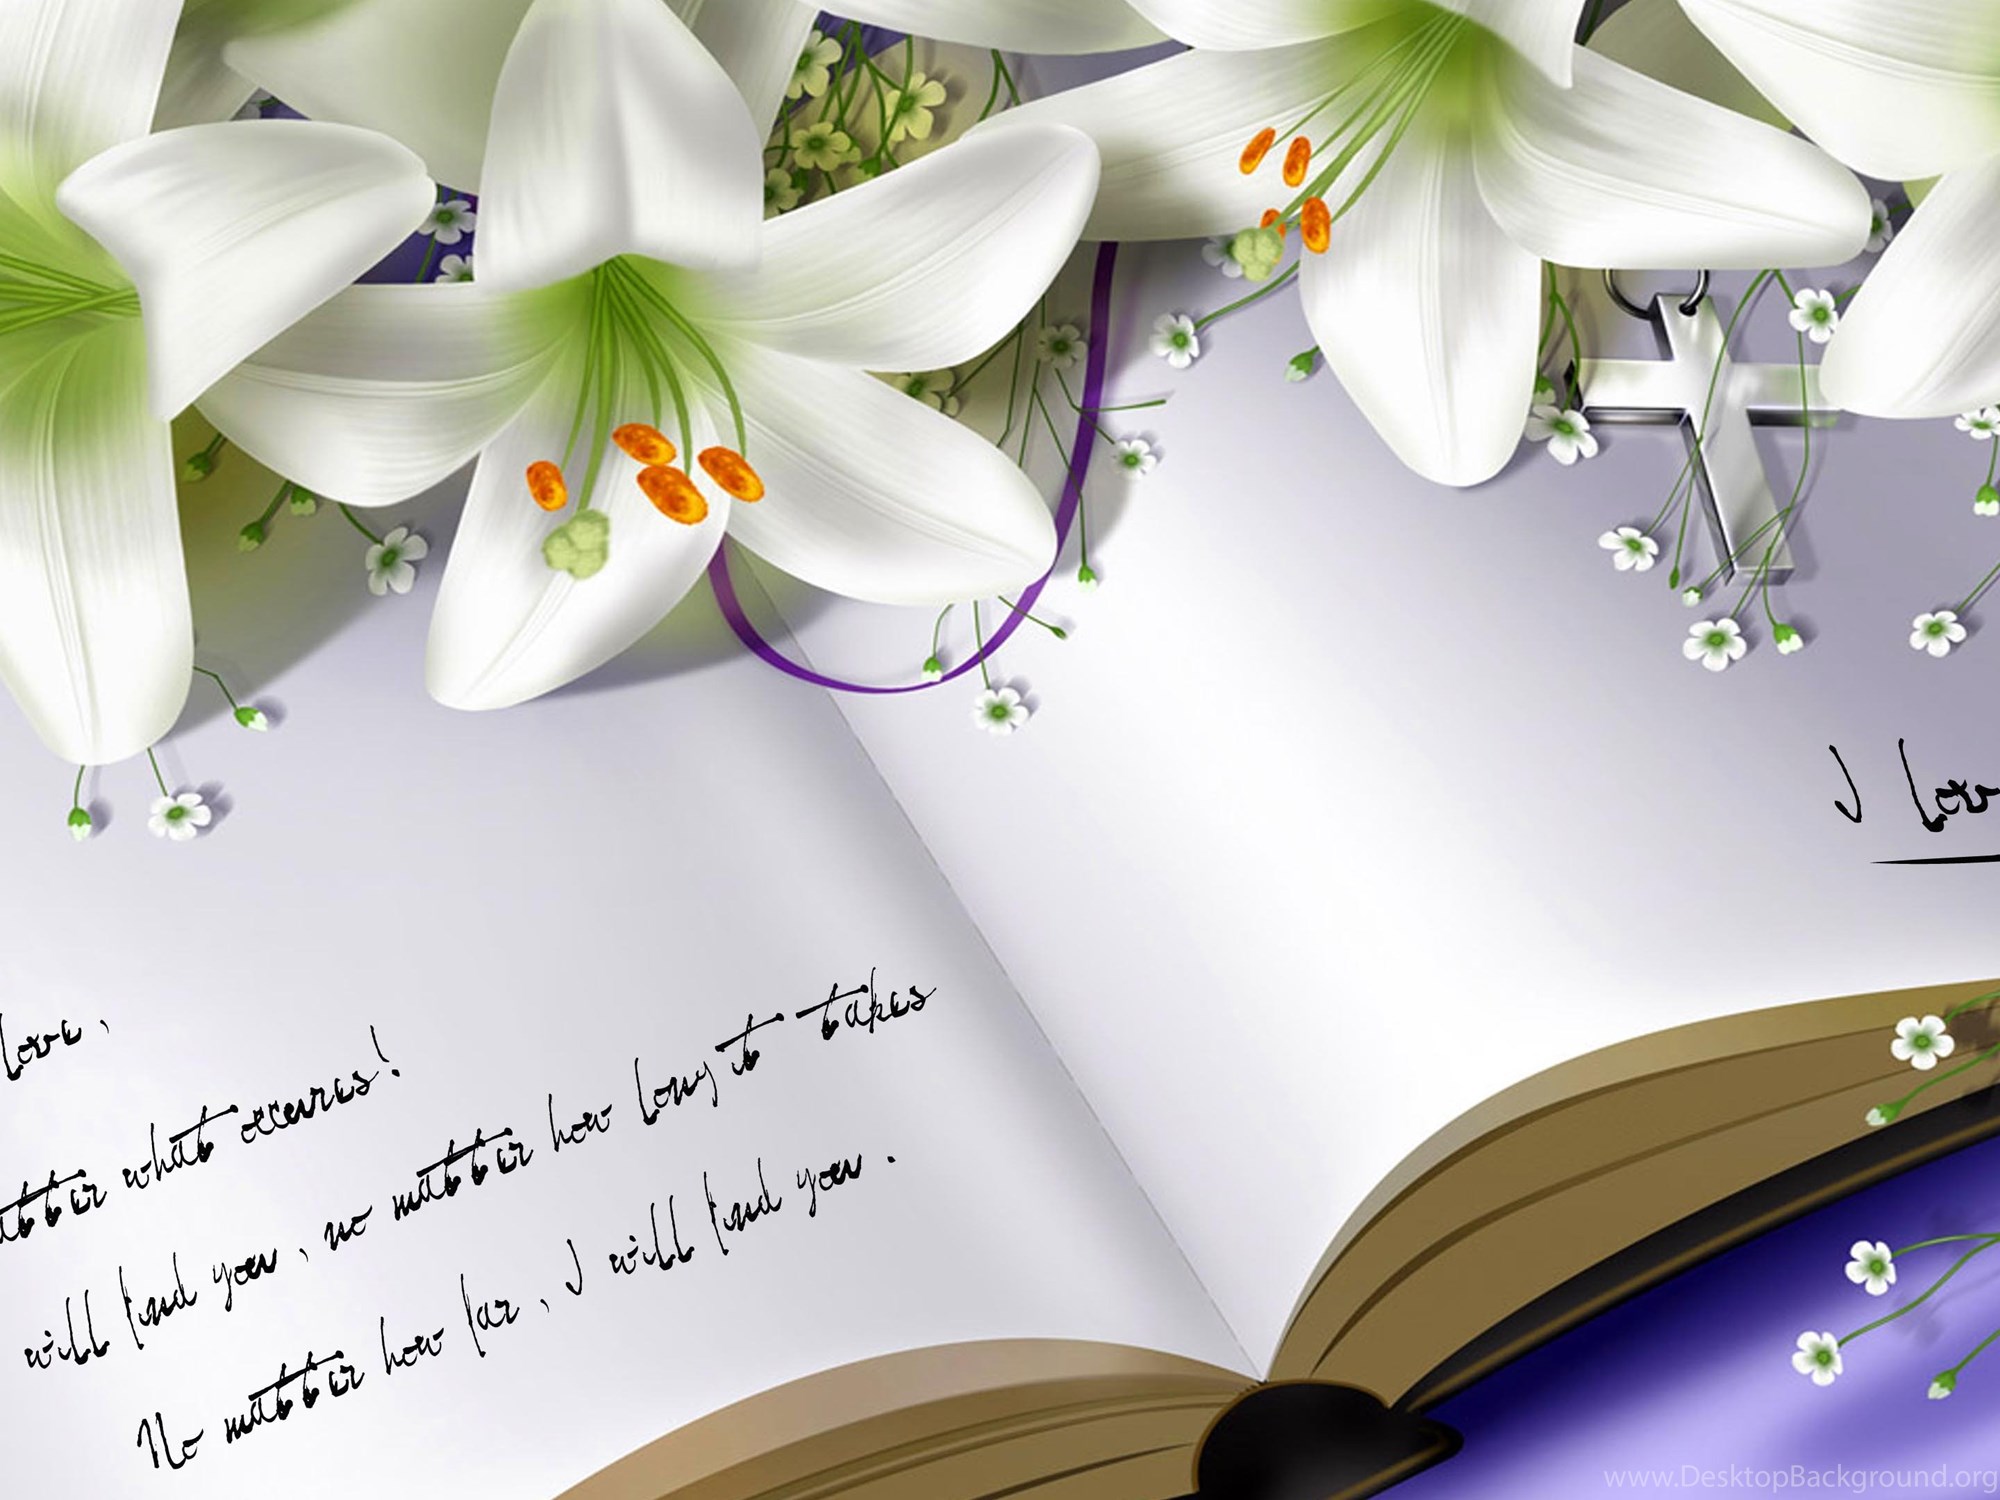 love,
atter what occures!
will find you, no matter how long it takes
No matter how far, I will find you.
I Love
www.DesktopBackground.org